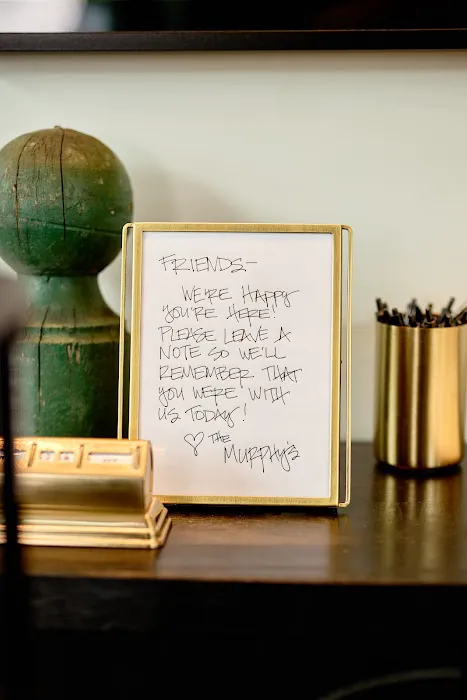 FRIENDS-
WE'RE HAPPY
YOU'RE HERE!
PLEASE LEAVE A
NOTE SO WE'LL
REMEMBER THAT
YOU WERE WITH
US TODAY!
♡ THE
MURPHY'S